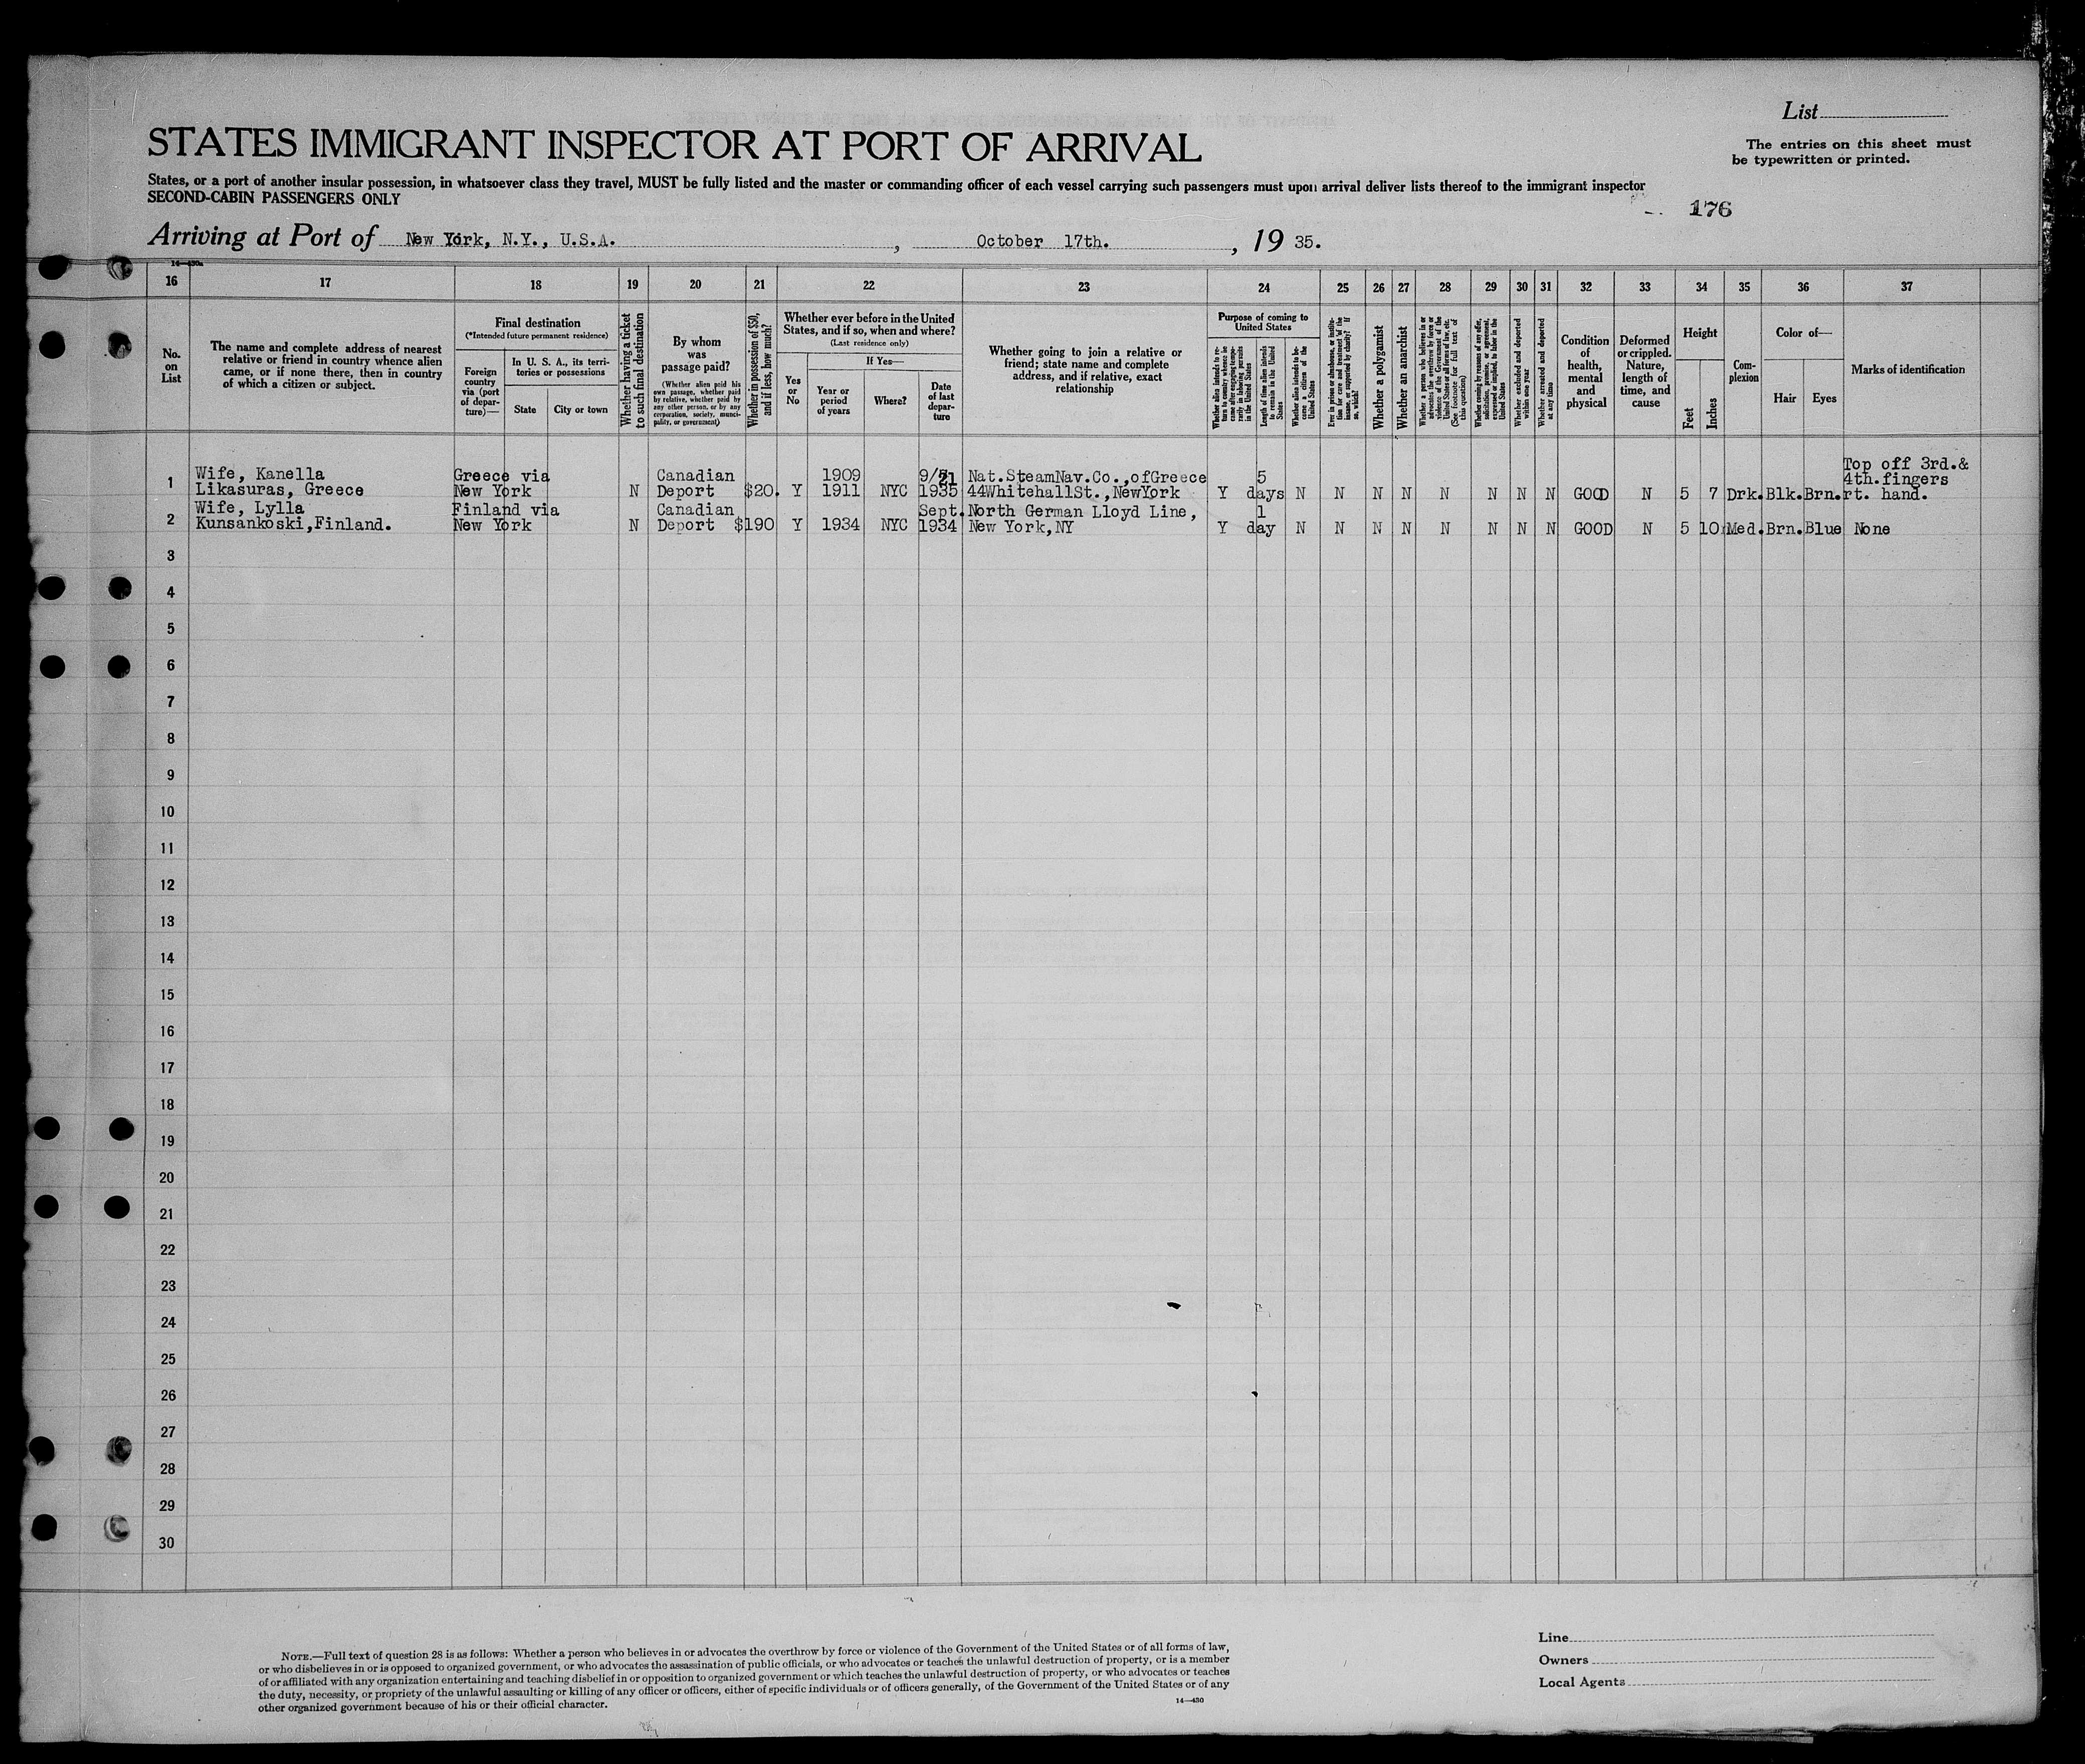 List
The entries on this sheet must
be typewritten or printed.
STATES IMMIGRANT INSPECTOR AT PORT OF ARRIVAL
States, or a port of another insular possession, in whatsoever class they travel, MUST be fully listed and the master or commanding officer of each vessel carrying such passengers must upon arrival deliver lists thereof to the immigrant inspector
SECOND-CABIN PASSENGERS ONLY
176
Arriving at Port of New York, N.Y., U.S.A. , October 17th. , 19 35.
16 17 18 19 20 21 22 23 24 25 26 27 28 29 30 31 32 33 34 35 36 37
No. on List
The name and complete address of nearest
relative or friend in country whence alien
came, or if none there, then in country
of which a citizen or subject.
Final destination
(*Intended future permanent residence)
Foreign
country
via (port
of depar-
ture)—
In U. S. A., its terri-
tories or possessions
State
City or town
Whether having a ticket
to such final destination
By whom
was
passage paid?
(Whether alien paid his
own passage, whether paid
by relative, whether paid by
any other person, or by any
corporation, society, munici-
pality, or government)
Whether in possession of $50,
and if less, how much?
Whether ever before in the United
States, and if so, when and where?
(Last residence only)
Yes
or
No
If Yes—
Year or
period
of years
Where?
Date
of last
depar-
ture
Whether going to join a relative or
friend; state name and complete
address, and if relative, exact
relationship
Purpose of coming to
United States
Whether alien intends to re-
turn to country whence he
came after engaging tempo-
rarily in laboring pursuits
in the United States
Length of time alien intends
to remain in the United
States
Whether alien intends to be-
come a citizen of the
United States
Ever in prison or almshouse, or institu-
tion for care and treatment of the
insane, or supported by charity? If
so, which?
Whether a polygamist
Whether an anarchist
Whether a person who believes in or
advocates the overthrow by force or
violence of the Government of the
United States or all forms of law, etc.
(See footnote for full text of
this question)
Whether coming by reasons of any offer,
solicitation, promise, or agreement,
expressed or implied, to labor in the
United States
Whether excluded and deported
within one year
Whether arrested and deported
at any time
Condition
of
health,
mental
and
physical
Deformed
or crippled.
Nature,
length of
time, and
cause
Height
Feet
Inches
Com-
plexion
Color of—
Hair
Eyes
Marks of identification
Top off 3rd.&
Wife, Kanella Greece via Canadian 1909 Nat.SteamNav.Co.,ofGreece 5 4th.fingers
1 Likasuras, Greece New York N Deport $20. Y 1911 NYC 1935 44WhitehallSt.,NewYork Y days N N N N N N N N GOOD N 5 7 Drk. Blk. Brn. rt. hand.
Wife, Lylla Finland via Canadian Sept. North German Lloyd Line, 1
2 Kunsankoski,Finland. New York N Deport $190 Y 1934 NYC 1934 New York,NY Y day N N N N N N N N GOOD N 5 10 Med. Brn. Blue None
3
4
5
6
7
8
9
10
11
12
13
14
15
16
17
18
19
20
21
22
23
24
25
26
27
28
29
30
NOTE.—Full text of question 28 is as follows: Whether a person who believes in or advocates the overthrow by force or violence of the Government of the United States or of all forms of law,
or who disbelieves in or is opposed to organized government, or who advocates the assassination of public officials, or who advocates or teaches the unlawful destruction of property, or is a member
of or affiliated with any organization entertaining and teaching disbelief in or opposition to organized government or which teaches the unlawful destruction of property, or who advocates or teaches
the duty, necessity, or propriety of the unlawful assaulting or killing of any officer or officers, either of specific individuals or of officers generally, of the Government of the United States or of any
other organized government because of his or their official character.
14—430
Line
Owners
Local Agents